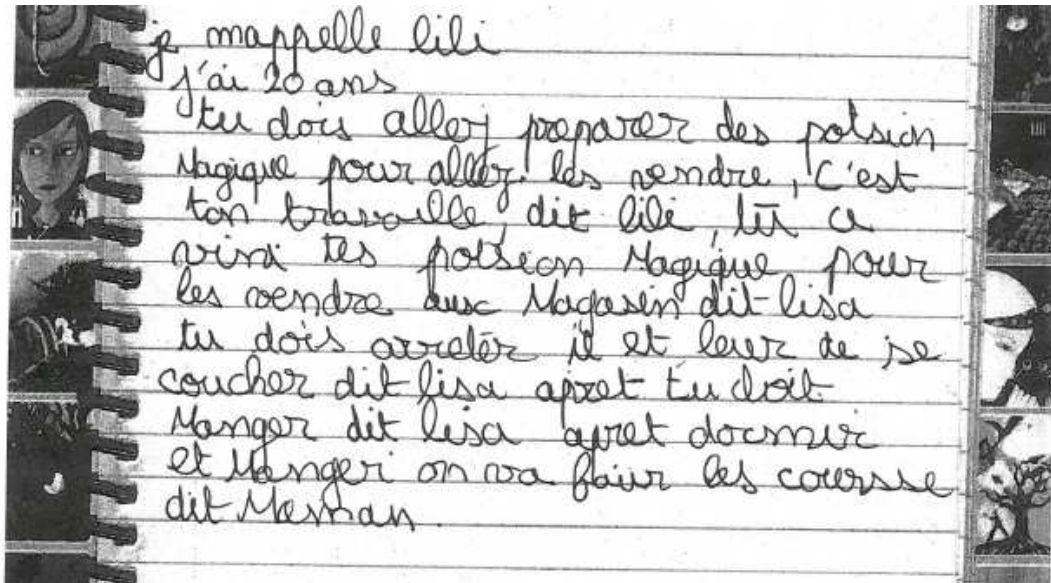 je mappelle lili
j'ai 20 ans
tu dois allez preparer des potsion
Magique pour allez les vendre, C'est
ton travaille dit lili, tu a
vini tes potsion Magique pour
les vendre aux Magasin dit lisa
tu dois arreter il et leur de se
coucher dit lisa apret tu doit
Manger dit lisa apret dormir
et Manger on va fair les coursse
dit Maman.